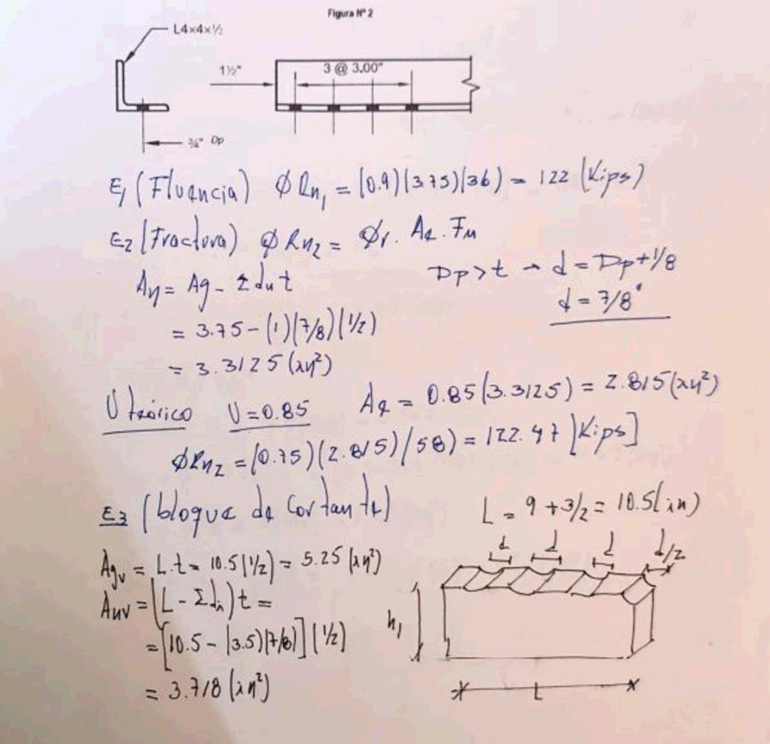 Figura Nº 2
L4x4x½
1½"
3 @ 3.00"
¾" Dp
E1 (Fluencia) ϕRn1 = (0.9)(3.75)(36) = 122 (Kips)
E2 (Fractura) ϕRn2 = ϕr. Ae. Fu
Dp>t → d = Dp+1/8
An = Ag - Σdnt
d = 7/8"
= 3.75-(1)(7/8)(1/2)
= 3.3125 (in²)
U teórico U=0.85 Ae = 0.85(3.3125) = 2.815(in²)
ϕRn2 = (0.75)(2.815)(58) = 122.47 [Kips]
E3 (bloque de cortante)
L = 9 + 3/2 = 10.5(in)
d d d d/2
Agv = L.t = 10.5(1/2) = 5.25 (in²)
Anv = (L - Σdn)t =
= [10.5 - (3.5)(7/8)](1/2)
h1
= 3.718 (in²)
L